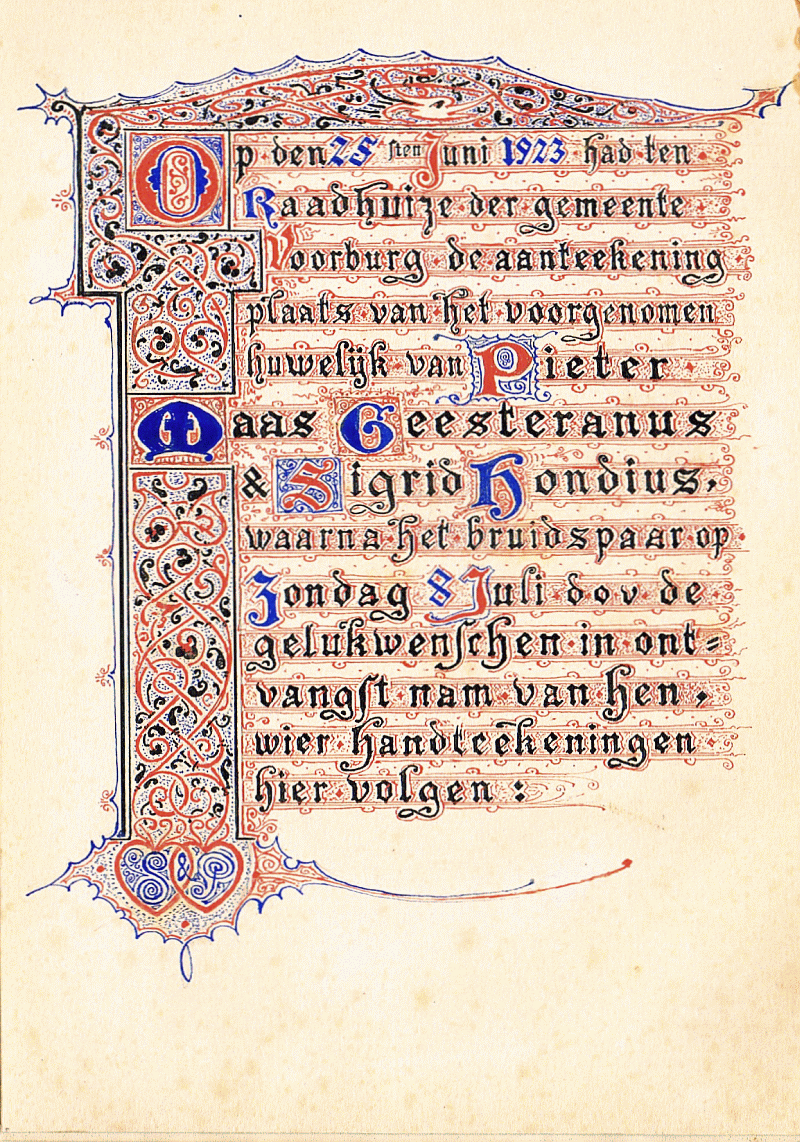 Op den 28sten Juni 1923 had ten
Raadhuize der gemeente
Voorburg de aanteekening
plaats van het voorgenomen
huwelijk van Pieter
Maas Geesteranus
& Sigrid Hondius,
waarna het bruidspaar op
Zondag 8 Juli d o v de
gelukwenschen in ont=
vangst nam van hen,
wier handteekeningen
hier volgen:
S & P